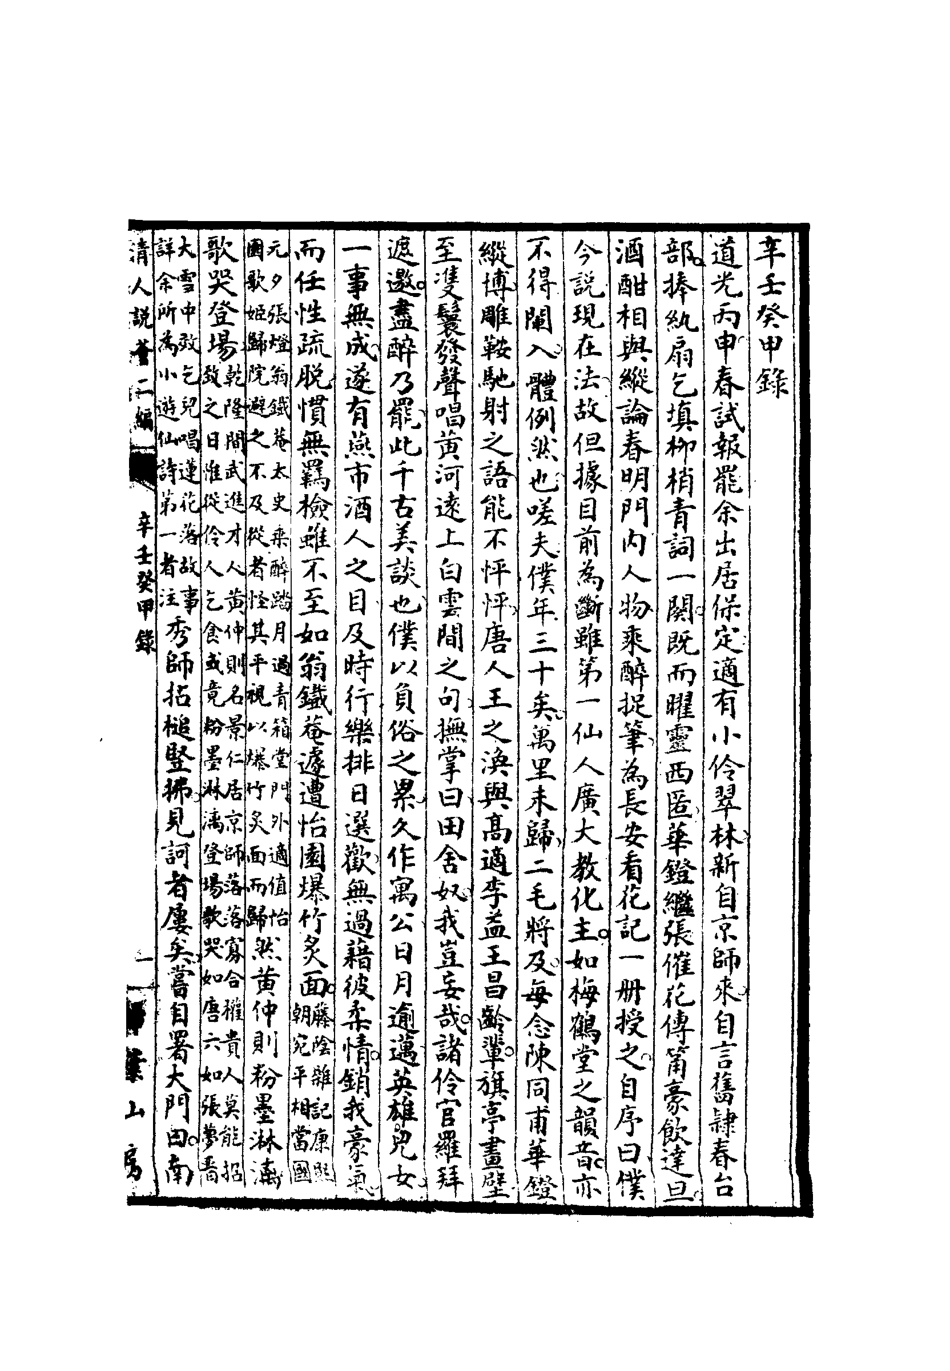 辛壬癸甲錄
道光丙申春試報罷余出居保定適有小伶翠林新自京師來自言舊隸春台
部捧紈扇乞填柳梢青詞一闋既而曜靈西匿華鐙繼張催花傳箭豪飲達旦
酒酣相與縱論春明門內人物乘醉捉筆為長安看花記一册授之自序曰僕
今說現在法故但據目前為斷雖第一仙人廣大教化主如梅鶴堂之韻音亦
不得闌入體例然也嗟夫僕年三十矣萬里未歸二毛將及每念陳同甫華鐙
縱博雕鞍馳射之語能不怦怦唐人王之渙與高適李益王昌齡輩旗亭畫壁
至雙鬟發聲唱黃河遠上白雲間之句撫掌曰田舍奴我豈妄哉諸伶官羅拜
遮邀盡醉乃罷此千古美談也僕以負俗之累久作寓公日月逾邁英雄兒女
一事無成遂有燕市酒人之目及時行樂排日選歡無過藉彼柔情銷我豪氣
而任性疏脫慣無羈檢雖不至如翁鐵菴遽遭怡園爆竹炙面藤陰雜記康熙
朝宛平相當國
元夕張燈翁鐵菴太史乘醉踏月過青箱堂門外適值怡
園歌姬歸院避之不及從者怪其平視以爆竹炙面而歸然黃仲則粉墨淋漓
歌哭登場乾隆間武進才人黃仲則名景仁居京師落落寡合權貴人莫能招
致之日惟從伶人乞食或竟粉墨淋漓登場歌哭如唐六如張夢晉
大雪中效乞兒唱蓮花落故事
詳余所為小遊仙詩第一者注秀師拈槌豎拂見訶者屢矣嘗自署大門曰南
清人說薈二編
辛壬癸甲錄
一
葉山房